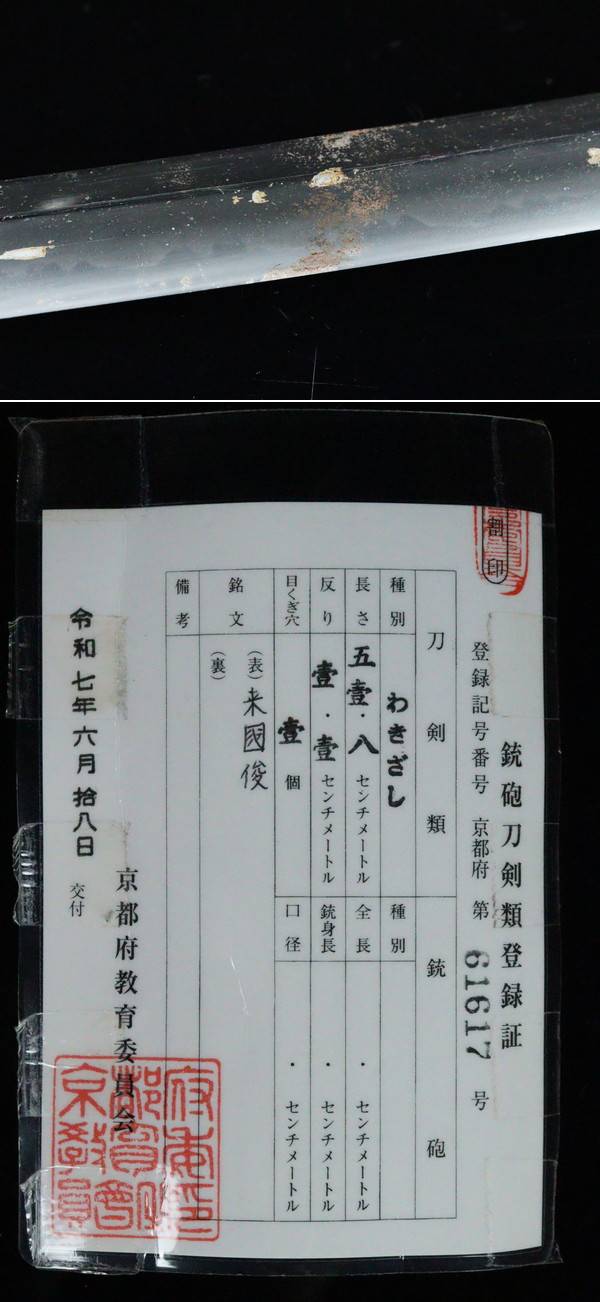 割印
銃砲刀剣類登録証
登録記号番号 京都府 第 61617 号
刀剣類
種別 わきざし
長さ 五壹.八 センチメートル
反り 壹.壹 センチメートル
目くぎ穴 壹 個
銘文 (表)来國俊
(裏)
備考
銃砲
種別
全長 . センチメートル
銃身長 . センチメートル
口径 . センチメートル
令和七年六月拾八日 交付
京都府教育委員会